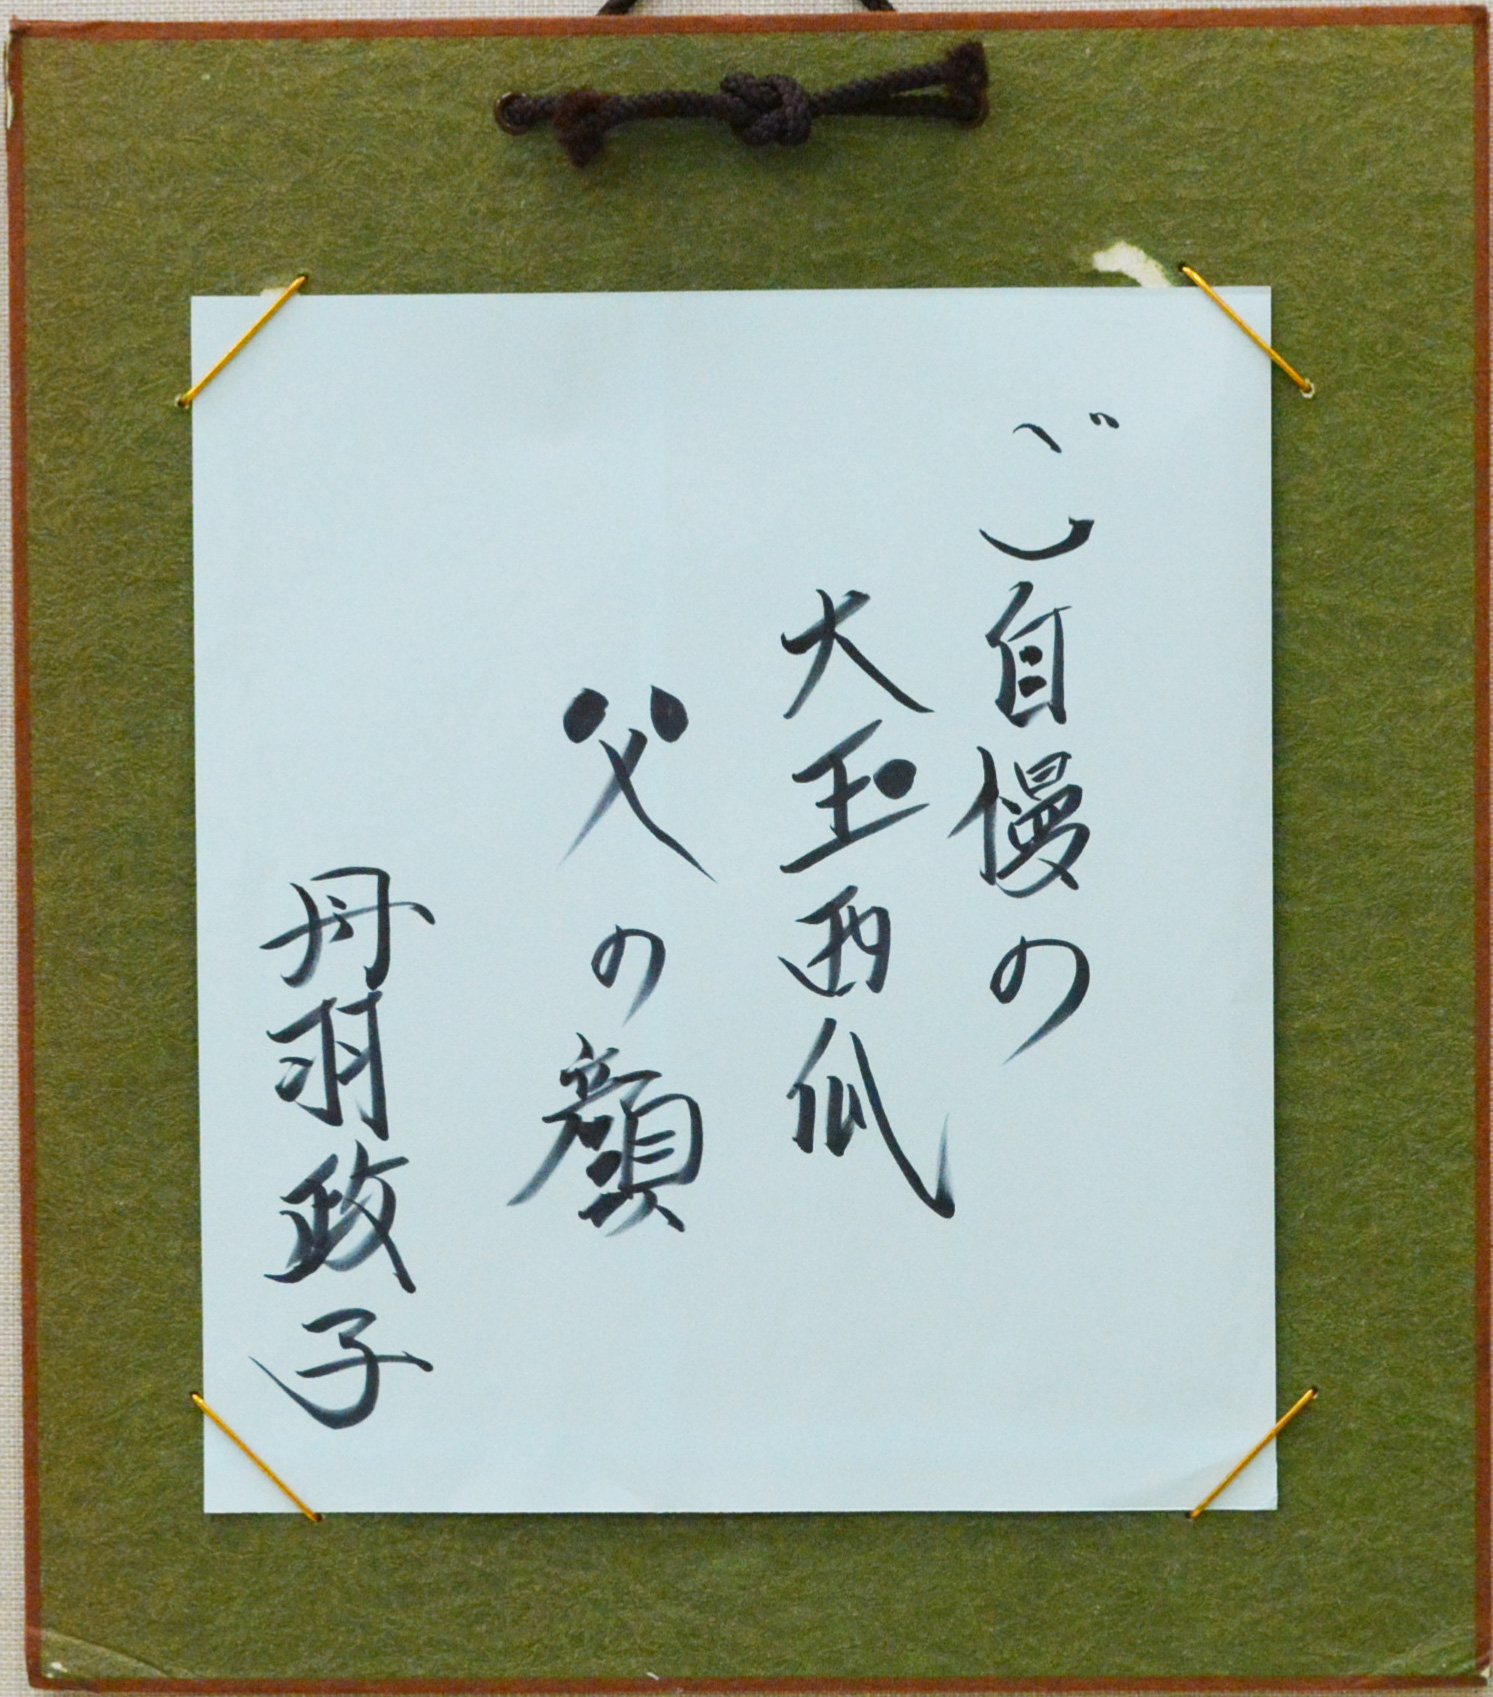 ご自慢の
大玉西瓜
父の顔
丹羽政子